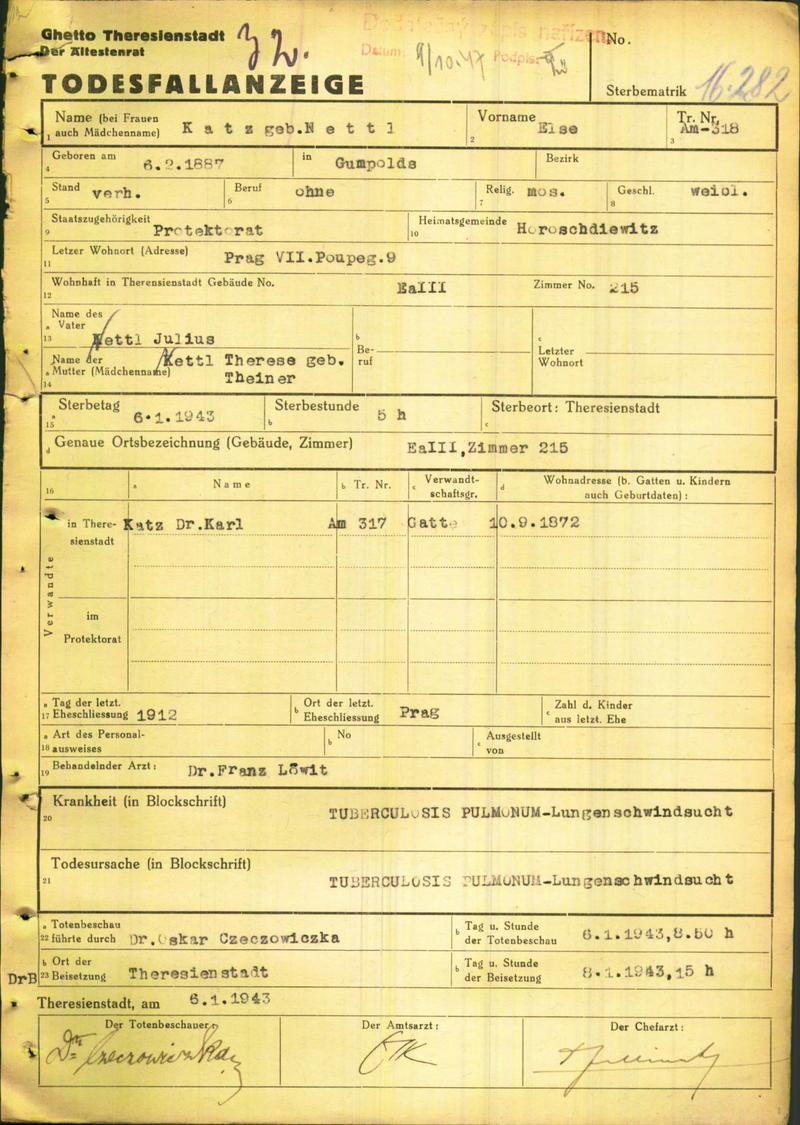 Ghetto Theresienstadt
Der Ältestenrat
TODESFALLANZEIGE
Datum: 9/10.47 Podpis:
No.
Sterbematrik 16.282
Name (bei Frauen auch Mädchenname) Katz geb.Nettl
1
Vorname Else
2
Tr. Nr. Am-318
3
Geboren am 6.2.1887 in Gumpolds Bezirk
4
Stand verh. Beruf ohne Relig. mos. Geschl. weibl.
5 6 7 8
Staatszugehörigkeit Protektorat Heimatsgemeinde Horoschdiewitz
9 10
Letzer Wohnort (Adresse) Prag VII.Poupeg.9
11
Wohnhaft in Therensienstadt Gebäude No. EaIII Zimmer No. 215
12
Name des
a Vater
13 Nettl Julius
Name der Nettl Therese geb.
a Mutter (Mädchenname) Theiner
14
b Beruf
c Letzter Wohnort
Sterbetag 6.1.1943 Sterbestunde 5 h Sterbeort: Theresienstadt
a 15 b c
d Genaue Ortsbezeichnung (Gebäude, Zimmer) EaIII,Zimmer 215
16 a Name b Tr. Nr. c Verwandtschaftsgr. d Wohnadresse (b. Gatten u. Kindern auch Geburtdaten):
Verwandte
in Theresienstadt Katz Dr.Karl Am 317 Gatte 10.9.1872
im Protektorat
a Tag der letzt. b Ort der letzt. c Zahl d. Kinder
17 Eheschliessung 1912 Eheschliessung Prag aus letzt. Ehe
a Art des Personal- b No c Ausgestellt
18 ausweises von
19 Behandelnder Arzt: Dr.Franz Löwit
Krankheit (in Blockschrift)
20 TUBERCULOSIS PULMONUM-Lungenschwindsucht
Todesursache (in Blockschrift)
21 TUBERCULOSIS PULMONUM-Lungenschwindsucht
a Totenbeschau b Tag u. Stunde
22 führte durch Dr.Oskar Czeczowiczka der Totenbeschau 6.1.1943,8.50 h
b Ort der b Tag u. Stunde
DrB 23 Beisetzung Theresienstadt der Beisetzung 8.1.1943,15 h
Theresienstadt, am 6.1.1943
Der Totenbeschauer: Der Amtsarzt: Der Chefarzt:
Dr. Czeczowiczka